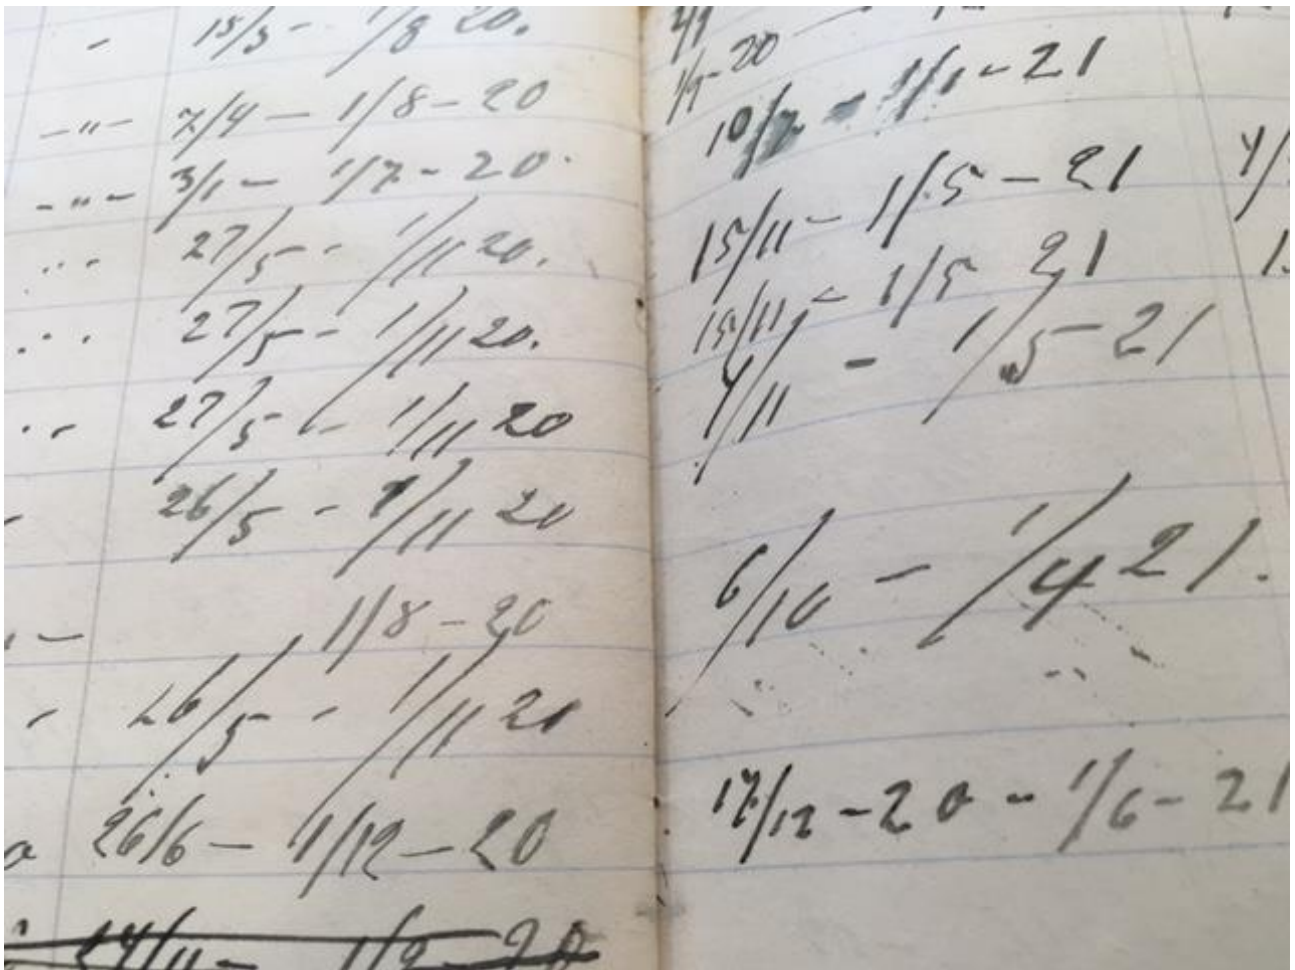 - 15/3 - 1/8 20.
-"- 7/4 - 1/8 - 20
-"- 3/1 - 1/7 - 20
27/5 - 1/11 20.
27/5 - 1/11 20.
27/5 - 1/11 20
26/5 - 1/11 20
- 1/8 - 20
- 26/5 - 1/11 20
26/6 - 1/12 - 20
1/9 - 20
10/7 - 1/1 - 21
15/11 - 1/5 - 21
15/11 - 1/5 21
4/11 - 1/5 - 21
6/10 - 1/4 21.
17/12 - 20 - 1/6 - 21